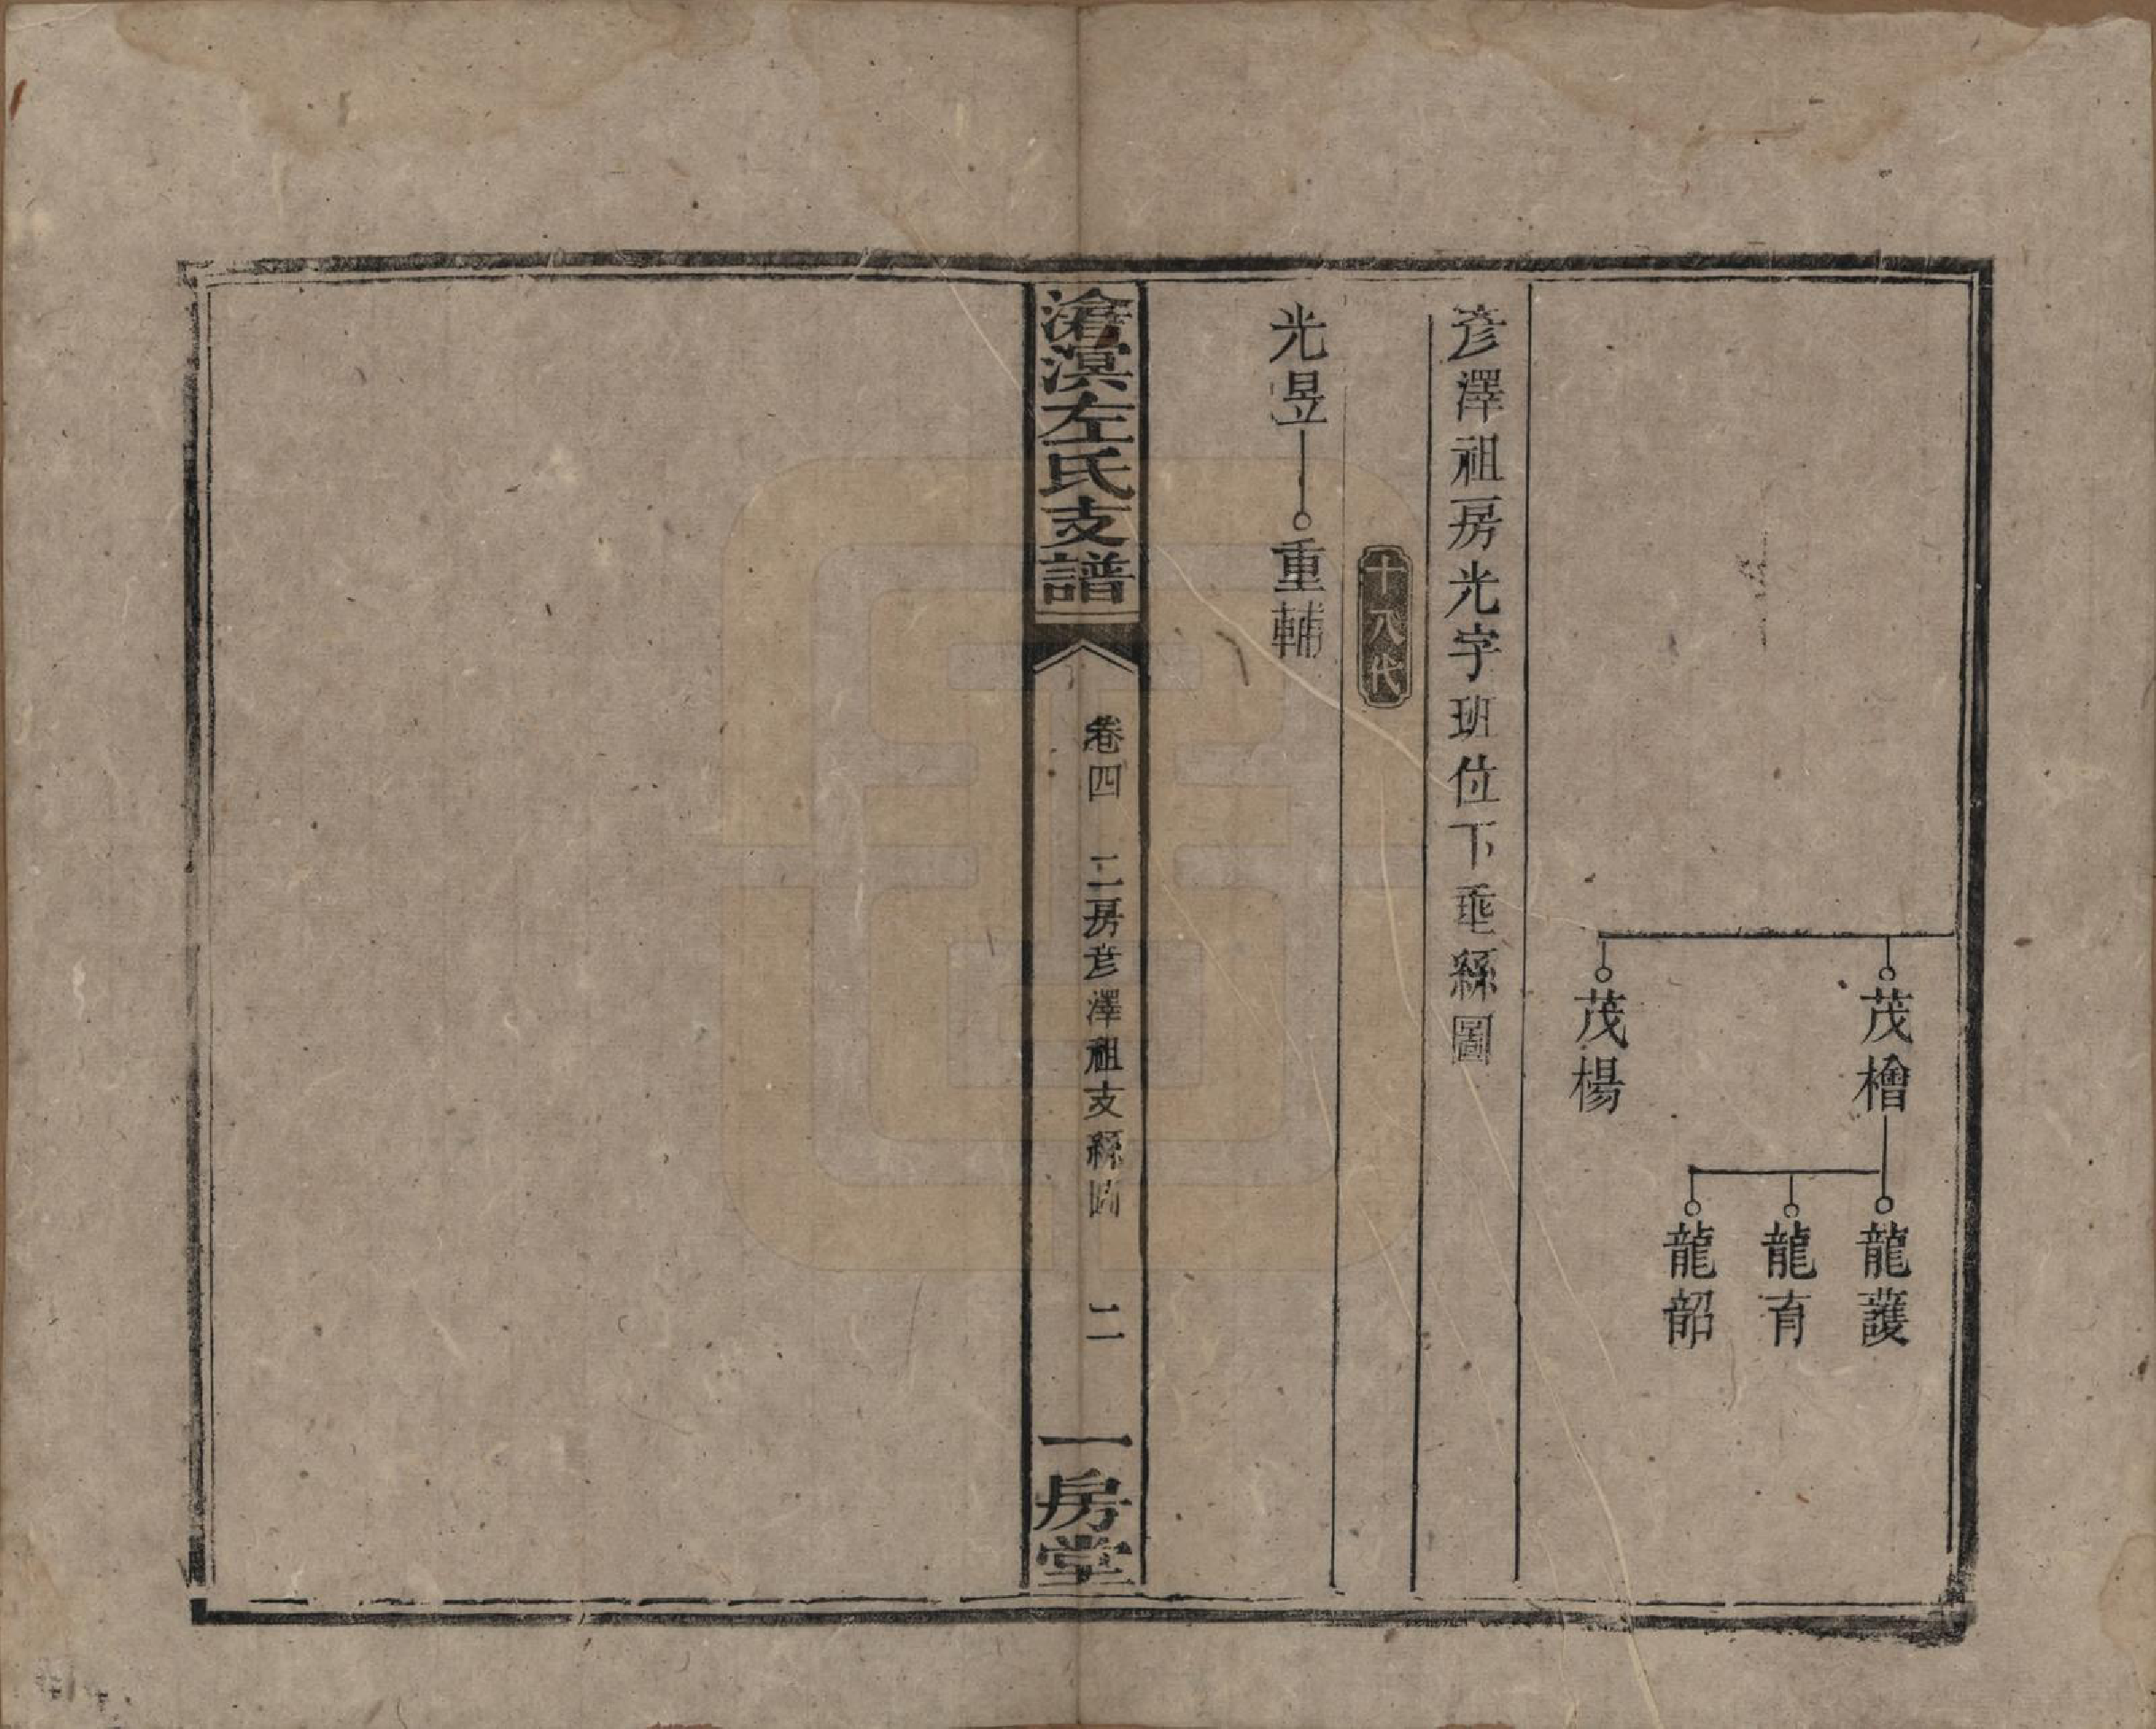 茂檜
龍護
龍育
龍韶
茂楊
彦澤祖房光字班位下垂絲圖
十八代
光昱
重輔
滄溟左氏支譜
卷四
二房彦澤祖支絲圖
二
一房堂